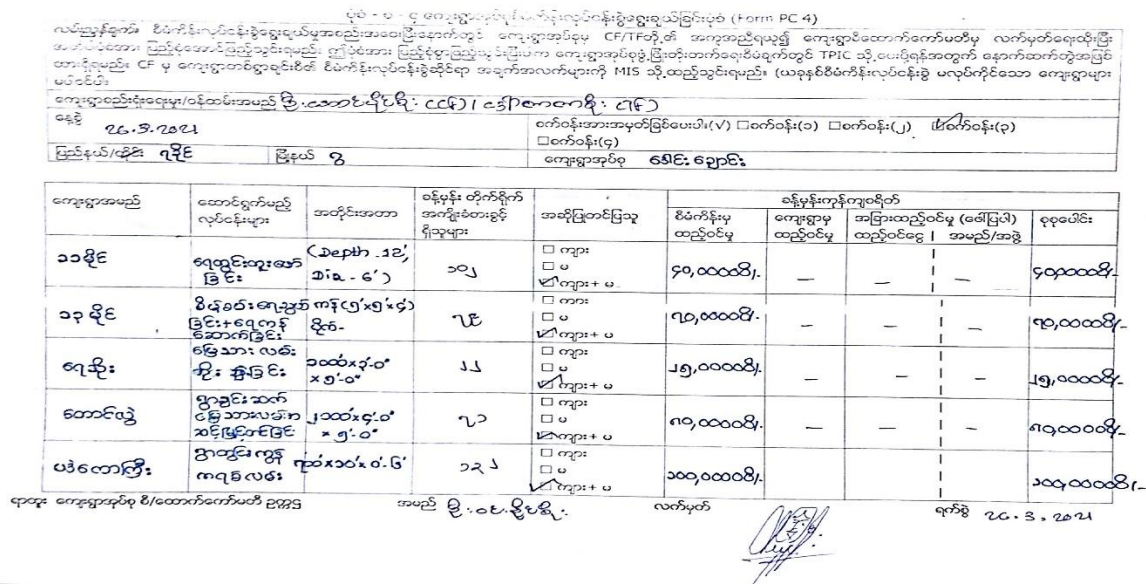 ပုံစံ - ပ - ၄ ကျေးရွာအုပ်စု စီမံကိန်းလုပ်ငန်းခွဲရွေးချယ်ခြင်းပုံစံ (Form PC 4)
လမ်းညွှန်ချက်။ စီမံကိန်းလုပ်ငန်းခွဲရွေးချယ်မှုအစည်းအဝေးပြီးနောက်တွင် ကျေးရွာအုပ်စုမှ CF/TFတို့၏ အကူအညီရယူ၍ ကျေးရွာစီထောက်ကော်မတီမှ လက်မှတ်ရေးထိုးပြီး
ပြည့်စုံအောင်ဖြည့်သွင်းရမည်။ ဤပုံစံအား ပြည့်စုံစွာဖြည့်သွင်းပြီးပါက ကျေးရွာအုပ်စုဖွံ့ဖြိုးတိုးတက်ရေးစီမံချက်တွင် TPIC သို့ပေးပို့ရန်အတွက် နောက်ဆက်တွဲအဖြစ်
ထားရှိရမည်။ CF မှ ကျေးရွာတစ်ရွာချင်းစီ၏ စီမံကိန်းလုပ်ငန်းခွဲဆိုင်ရာ အချက်အလက်များကို MIS သို့ထည့်သွင်းရမည်။ (ယခုနှစ်စီမံကိန်းလုပ်ငန်းခွဲ မလုပ်ကိုင်သော ကျေးရွာများ
မပါဝင်ပါ။
ကျေးရွာစည်းရုံးရေးမှူး/ဝန်ထမ်းအမည် ဦး (CF) / ဒေါ် (TF)
နေ့စွဲ 26.3.2021 စက်ဝန်းအားအမှတ်ခြစ်ပေးပါ။(√) □စက်ဝန်း(၁) □စက်ဝန်း(၂) ☑စက်ဝန်း(၃)
□စက်ဝန်း(၄)
ပြည်နယ်/တိုင်း ရခိုင် မြို့နယ် ကျေးရွာအုပ်စု ခေါင်းချောင်း
ကျေးရွာအမည် ဆောင်ရွက်မည့် လုပ်ငန်းများ အတိုင်းအတာ ခန့်မှန်း တိုက်ရိုက် အကျိုးခံစားခွင့် ရှိသူများ အဆိုပြုတင်ပြသူ ခန့်မှန်းကုန်ကျစရိတ်
စီမံကိန်းမှ ထည့်ဝင်မှု ကျေးရွာမှ ထည့်ဝင်မှု အခြားထည့်ဝင်မှု (ဖော်ပြပါ) ထည့်ဝင်ငွေ | အမည်/အဖွဲ့ စုစုပေါင်း
၁၁မိုင် ရေတွင်းတူးဖော်ခြင်း (Depth - 12', Dia - 6') ၁၀၂ □ ကျား □ မ ☑ ကျား+ မ ၄၀,၀၀၀၀ိ/- – – – ၄၀,၀၀၀၀ိ/-
၁၃ မိုင် ရေကန်ဆောက်ခြင်း (၅'x၅'x၄') ၇၆ □ ကျား □ မ ☑ ကျား+ မ ၇၀,၀၀၀၀ိ/- – – – ၇၀,၀၀၀၀ိ/-
ရေဆိုး မြေသားလမ်း ၁၀၀၀'x၃'-0" x ၅'-0" ၂၂ □ ကျား □ မ ☑ ကျား+ မ ၂၅,၀၀၀၀ိ/- – – – ၂၅,၀၀၀၀ိ/-
တောင်လွဲ ရွာချင်းဆက် မြေသားလမ်းအဆင့်မြှင့်တင်ခြင်း ၂၁၀၀'x၄'-0" x ၅'-0" ၇၁ □ ကျား □ မ ☑ ကျား+ မ ၈၀,၀၀၀၀ိ/- – – – ၈၀,၀၀၀၀ိ/-
ပဒဲကောကြီး ရွာတွင်းကွန်ကရစ်လမ်း ၇၀၀'x၁၀'x၀'-၆" ၁၃၂ □ ကျား □ မ ☑ ကျား+ မ ၁၀၀,၀၀၀၀ိ/- – – – ၁၀၀,၀၀၀၀ိ/-
ရာထူး ကျေးရွာအုပ်စု စီ/ထောက်ကော်မတီ ဥက္ကဋ္ဌ အမည် ဦး လက်မှတ် ရက်စွဲ 26.3.2021